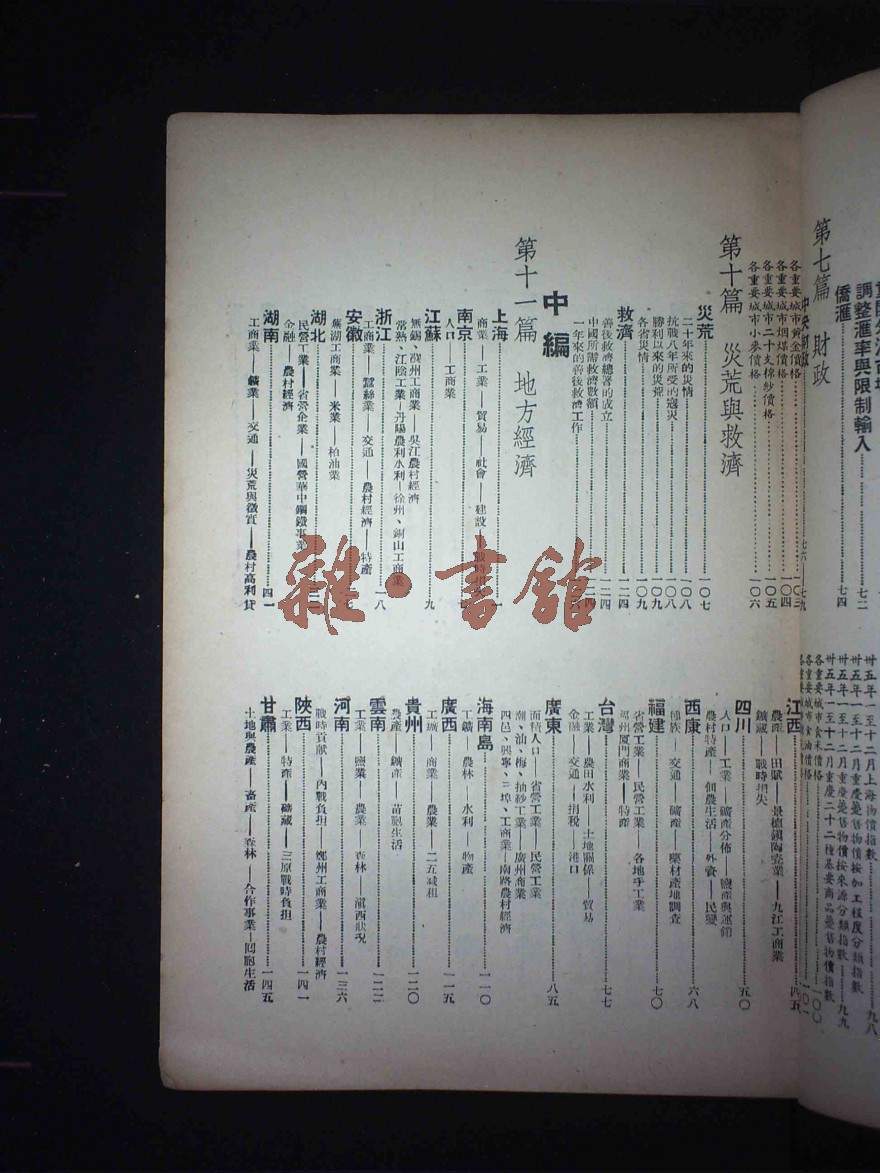 第七篇 財政
調整滙率與限制輸入……七二
僑滙……七四
各重要城市黃金價格……一〇三
各重要城市烟煤價格……一〇四
各重要城市二十支棉紗價格……一〇五
各重要城市小麥價格……一〇六
第十篇 災荒與救濟
災荒……一〇七
二十年來的災情……一〇八
抗戰八年所受的寇災……一〇八
勝利以來的災荒……一〇九
各省災情……一〇九
救濟……一二四
善後救濟總署的成立……一二四
中國所需救濟數額
一年來的善後救濟工作
中編
第十一篇 地方經濟
上海
商業—工業—貿易—社會—建設
南京
人口—工商業
江蘇……九
無錫、濮州工商業—吳江農村經濟
常熟、江陰工業—丹陽農村水利—徐州、銅山工商業
浙江……一八
工商業—蠶絲業—交通—農村經濟—特產
安徽
蕪湖工商業—米業—柏油業
湖北
民營工業—省營企業—國營華中鋼鐵事業
金融—農村經濟
湖南……四一
工商業—鑛業—交通—災荒與徵實—農村高利貸
卅五年一至十二月上海物價指數……九八
卅五年一至十二月重慶躉售物價按加工程度分類指數……九九
卅五年一至十二月重慶躉售物價按來源分類指數……九九
卅五年一至十二月重慶二十二種基要商品躉售物價指數
各重要城市食米價格……一〇〇
各重要城市食油價格……一〇一
江西……四五
農產—田賦—景德鎮陶瓷業—九江工商業
鑛藏—戰時損失
四川……五〇
人口—工業—鑛產分佈—鹽產與運銷
農村特產—佃農生活—外資—民變
西康……六八
種族—交通—鑛產—藥材產地調查
福建……七〇
省營工業—民營工業—各地手工業
福州厦門商業—特產
台灣……七七
工業—農田水利—土地關係—貿易
金融—交通—捐稅—港口
廣東……八五
面積人口—省營工業—民營工業
潮、汕、梅、抽紗工業—廣州商業
四邑、興寧、三埠、工商業—南路農村經濟
海南島……一一〇
工鑛—農林—水利—物產
廣西……一一五
工礦—商業—農業—二五減租
貴州……一二〇
農產—鑛產—苗胞生活
雲南……一二二
工業—鹽業—農業—森林—滇西狀況
河南……一三六
戰時貢獻—內戰負担—鄭州工商業—農村經濟
陝西……一四一
工業—特產—礦藏—三原戰時負担
甘肅……一四五
土地與農產—畜產—森林—合作事業—回胞生活
雜·書館